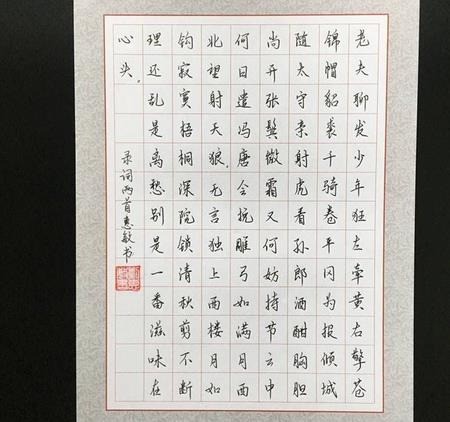 老夫聊发少年狂左牵黄右擎苍
锦帽貂裘千骑卷平冈为报倾城
随太守亲射虎看孙郎酒酣胸胆
尚开张鬓微霜又何妨持节云中
何日遣冯唐会挽雕弓如满月西
北望射天狼。无言独上西楼月如
钩寂寞梧桐深院锁清秋剪不断
理还乱是离愁别是一番滋味在
心头。
录词两首惠敏书